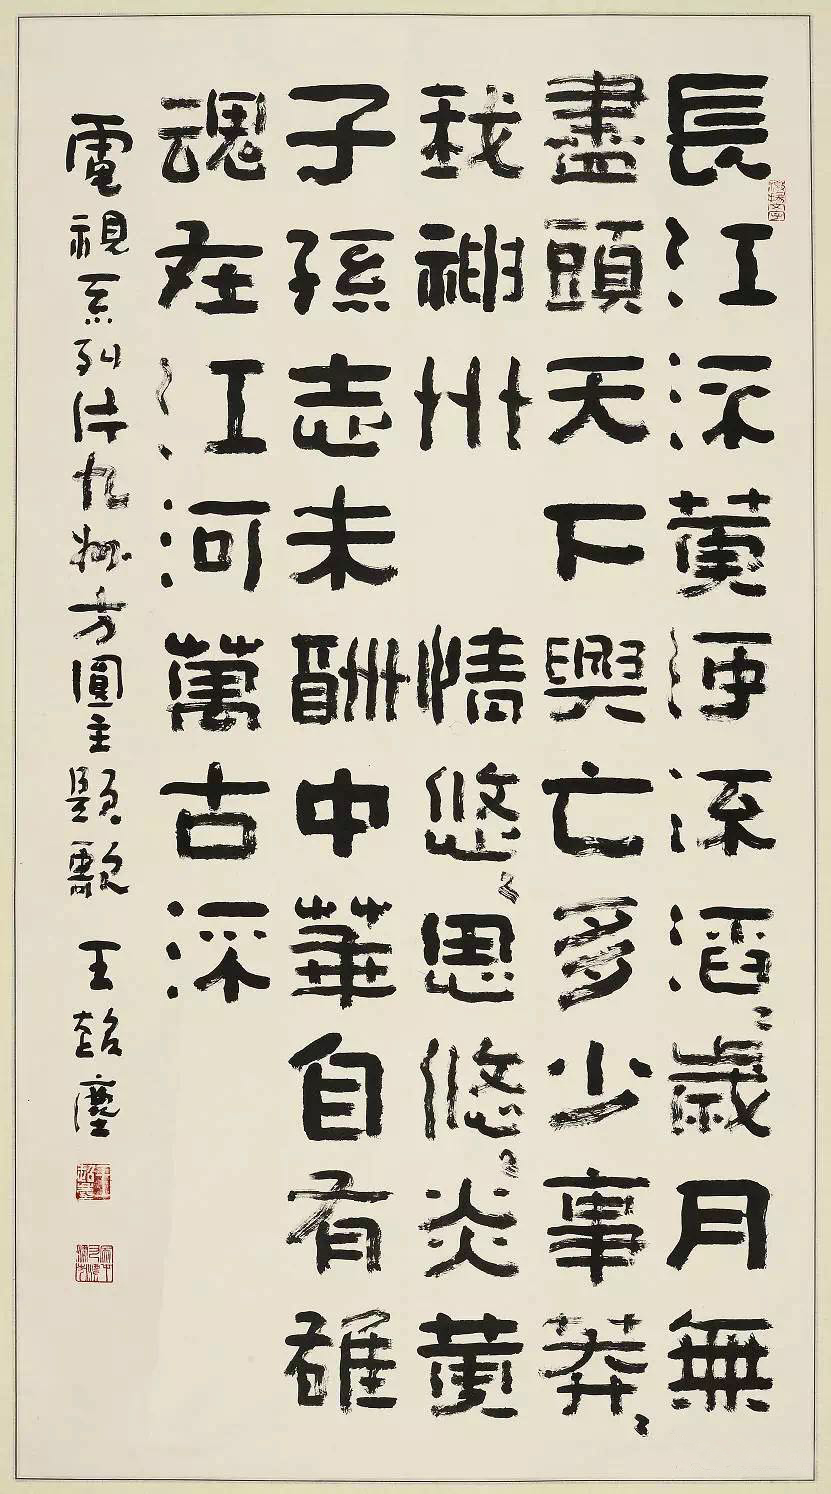 長江流黄河流滔〻歲月無
盡頭天下興亡多少事莽〻
我神州 情悠〻思悠〻炎黄
子孫志未酬中華自有雄
魂在江河萬古流
電視系列片九州方圓主題歌 王超塵